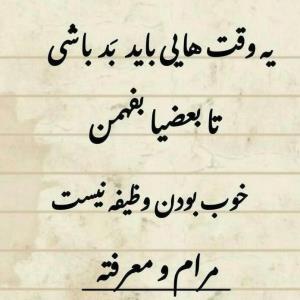 یه وقت هایی باید بَد باشی
تا بعضیا بفهمن
خوب بودن وظیفه نیست
مرام و معرفته